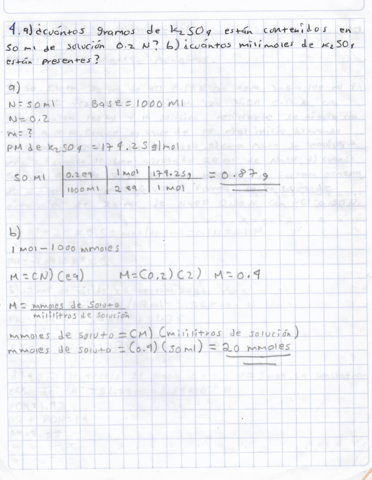 4. a) ¿cuántos gramos de K₂SO₄ están contenidos en
50 ml de solución 0.2 N? b) ¿cuántos milimoles de K₂SO₄
están presentes?
a)
N=50ml Base = 1000 ml
N=0.2
m=?
PM de K₂SO₄ = 174.25g/mol
50 ml | 0.2eq | 1 mol | 174.25g = 0.87 g
1000 ml | 2 eq | 1 mol
b)
1 mol - 1000 mmoles
M = (N) (eq) M=(0.2)(2) M=0.4
M = mmoles de soluto
mililitros de solución
mmoles de soluto = (M) (mililitros de solución)
mmoles de soluto = (0.4) (50ml) = 20 mmoles